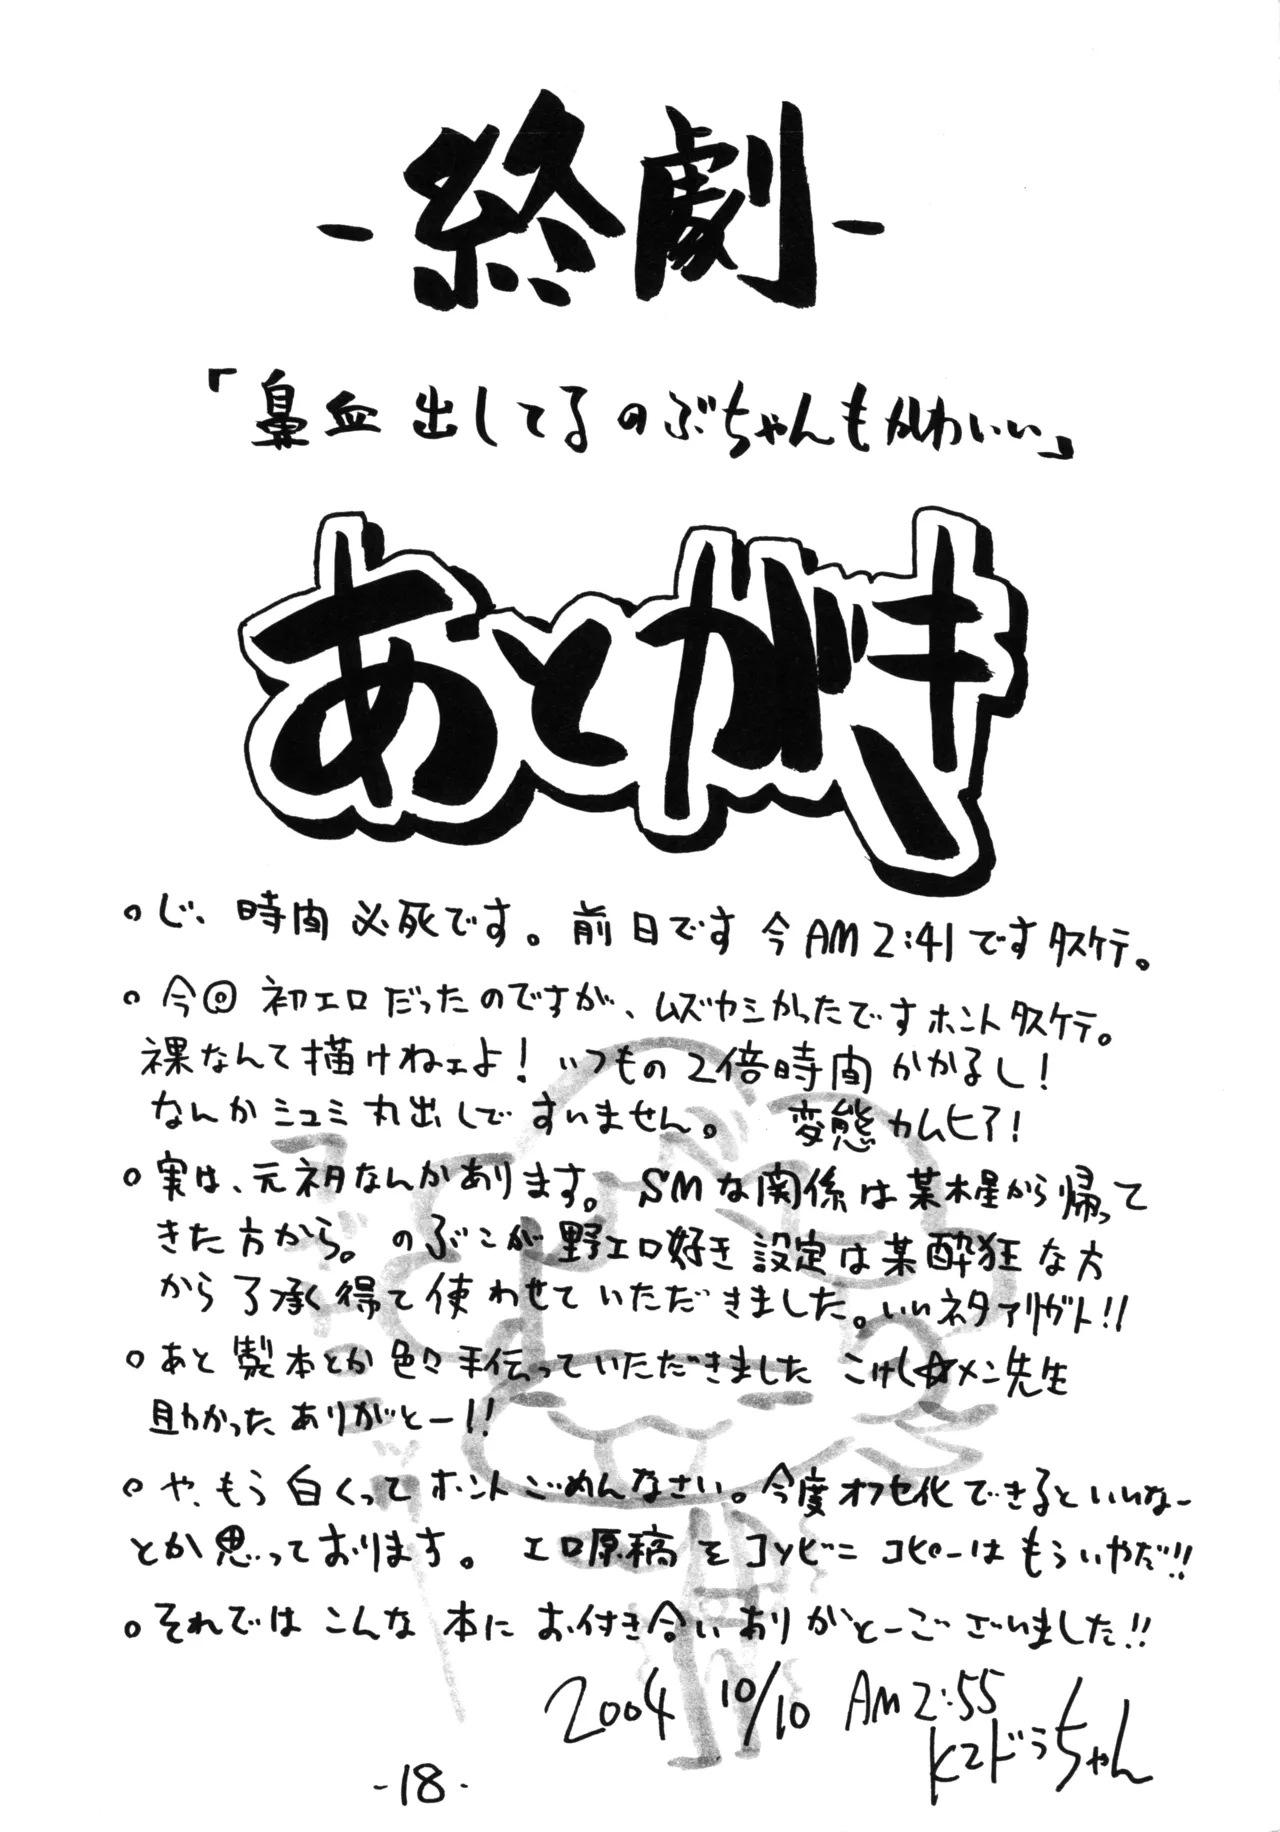 -終劇-
「鼻血出してるのぶちゃんもかわいい」
あとがき
。じ、時間必死です。前日です 今AM2:41です タスケテ。
。今回 初エロだったのですが、ムズカシかったです ホント タスケテ。
裸なんて描けねェよ! いつもの2倍時間かかるし!
なんかミュミ丸出しですいません。 変態カムヒア!
。実は、元ネタなんかあります。SMな関係は某木星から帰って
きた方から。のぶこが野エロ好き設定は某酔狂な方
から了承得て使わせていただきました。いいネタアリガト!!
。あと製本とか色々手伝っていただきました こけし☆メン先生
助かった ありがとー!!
。や、もう白くってホントごめんなさい。今度オフセ化できるといいなー
とか思っております。 エロ原稿をコンビニコピーはもういやだ!!
。それではこんな本にお付き合いありがとーございました!!
2004 10/10 AM2:55
K2ドうちゃん
-18-